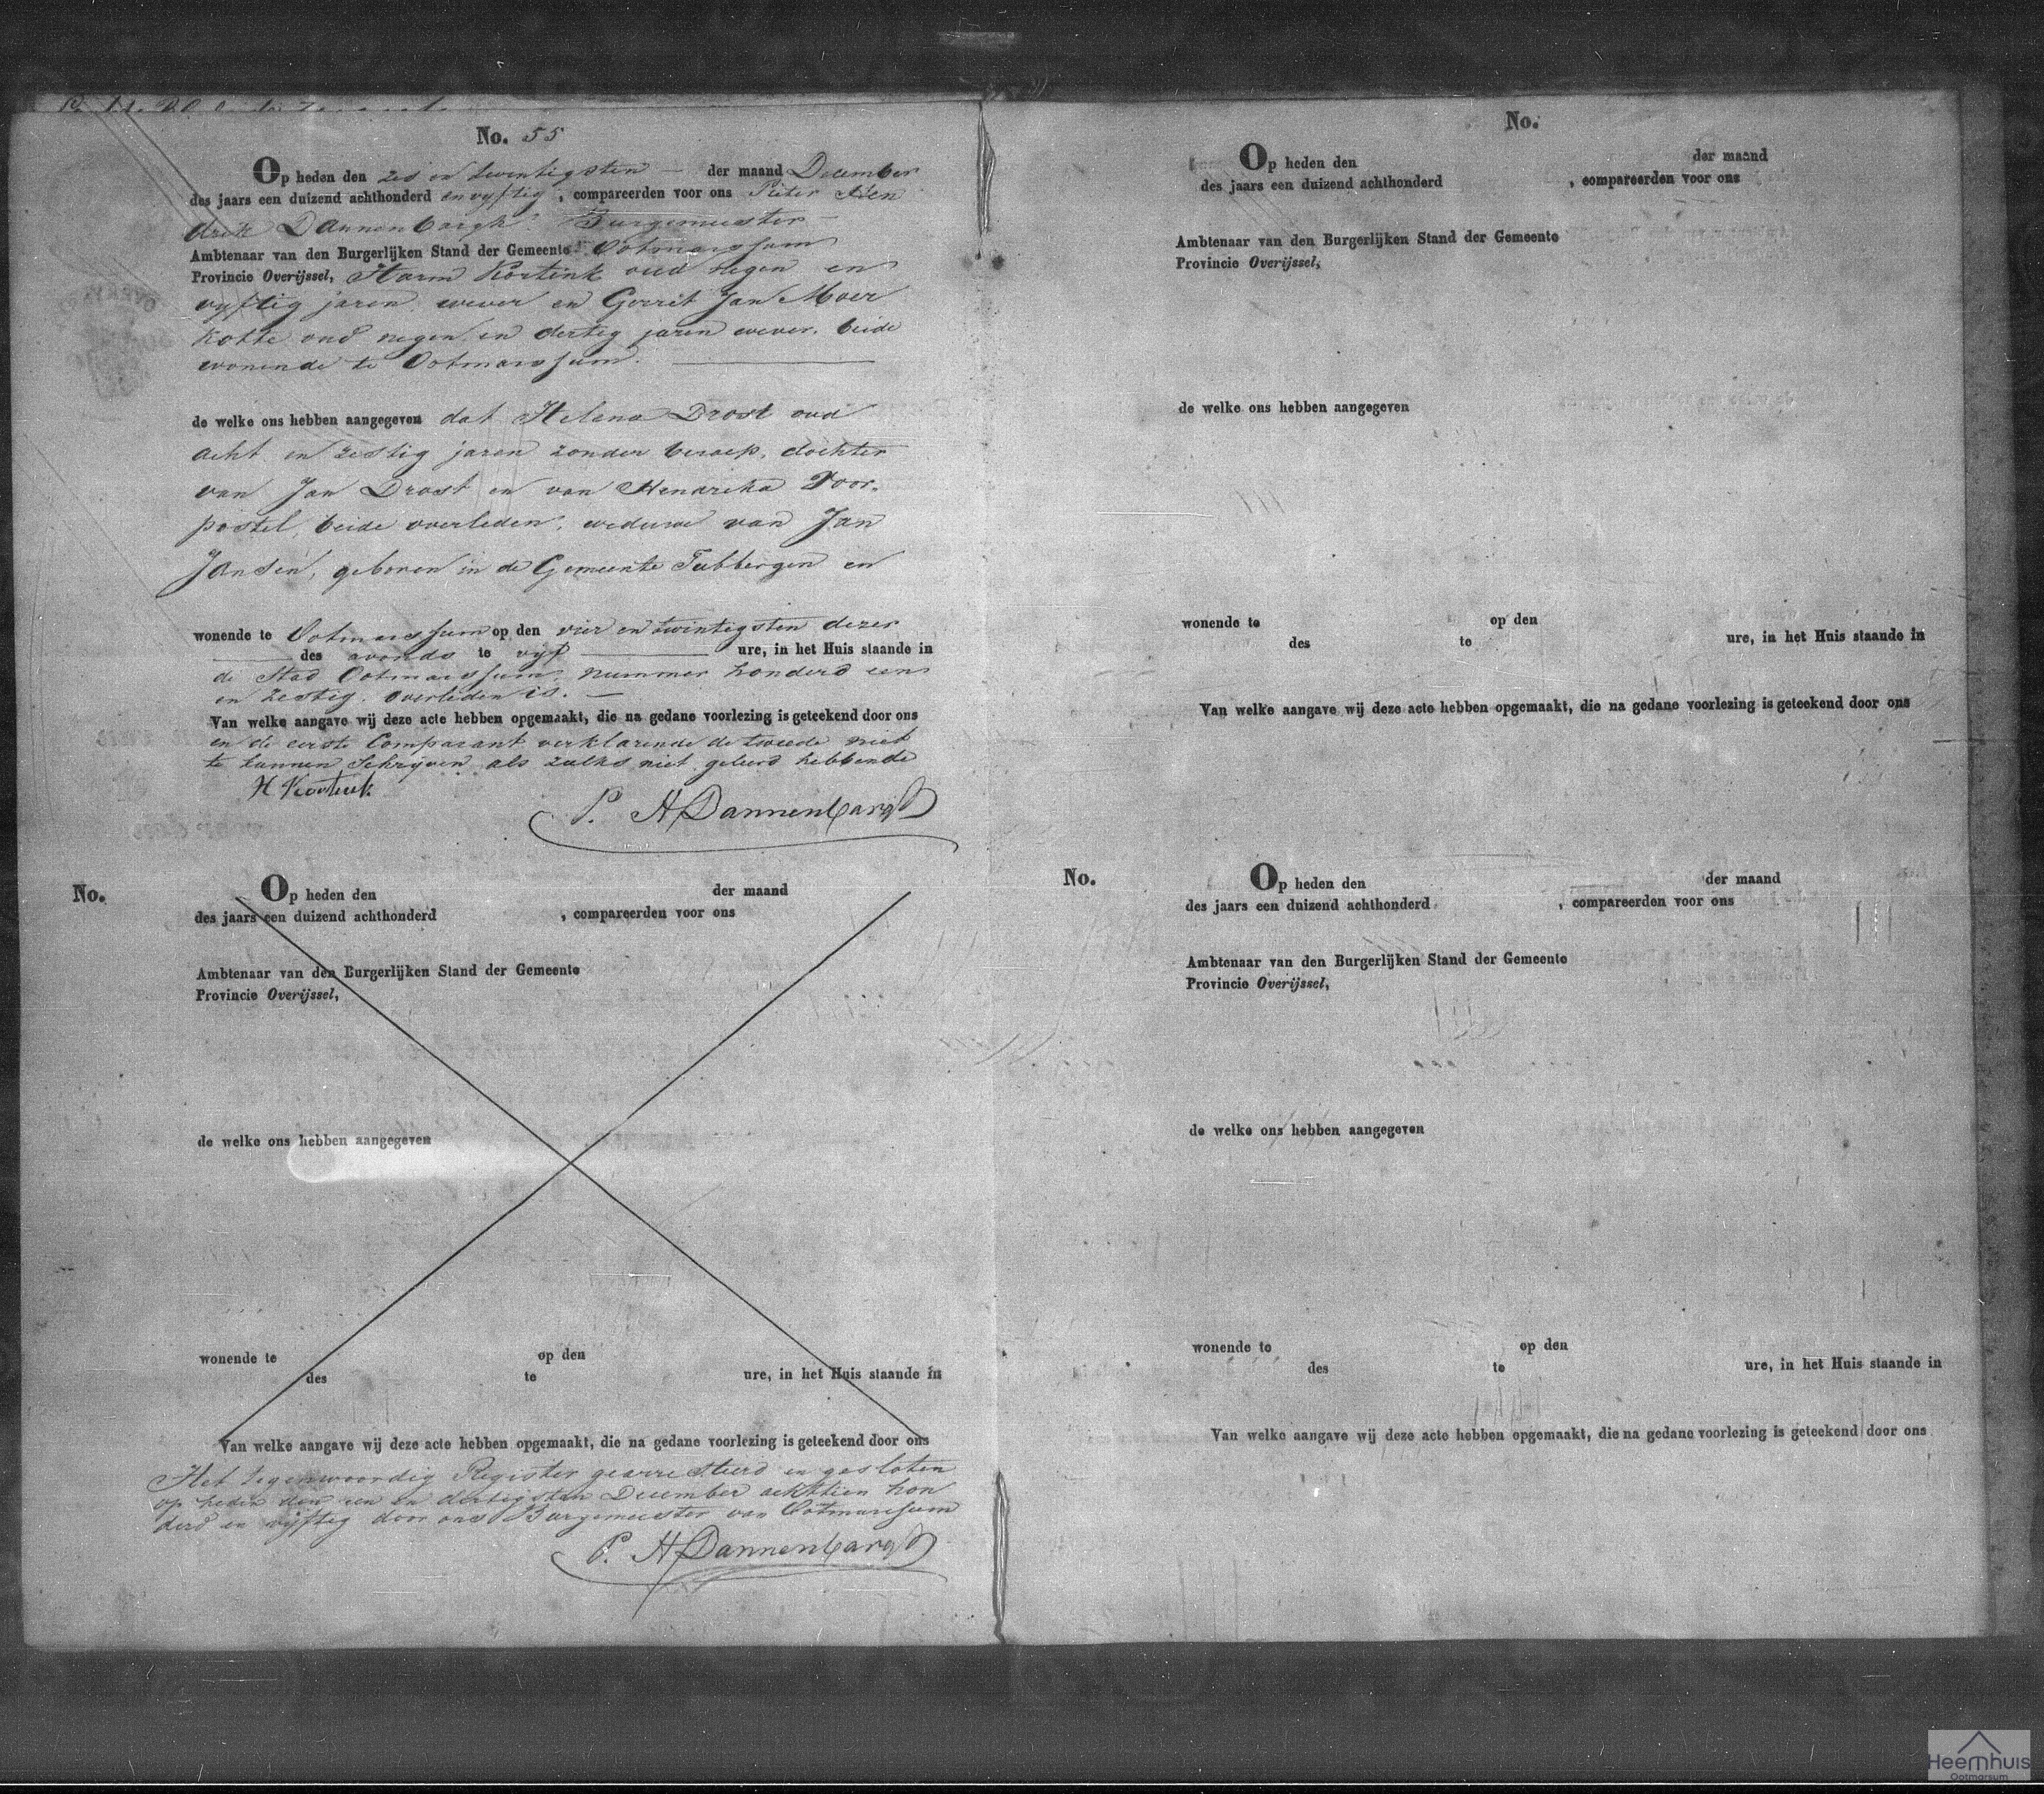 No. 55
Op heden den zes en twintigsten — der maand December
des jaars een duizend achthonderd en vyftig, compareerden voor ons Pieter Hen
drik Dannenbargh Burgemeester —
Ambtenaar van den Burgerlijken Stand der Gemeente Ootmarssum
Provincie Overijssel, Harm Kortink oud negen en
vyftig jaren wever en Gerrit Jan Moer
kotte oud negen en dertig jaren wever, beide
wonende te Ootmarssum.
de welke ons hebben aangegeven dat Helena Drost oud
acht en zestig jaren zonder beroep, dochter
van Jan Drost en van Hendrika Voor-
postel, beide overleden, weduwe van Jan
Jansen, geboren in de Gemeente Tubbergen en
wonende te Ootmarssum op den vier en twintigsten dezer
des avonds te vijf ure, in het Huis staande in
de Stad Ootmarssum, nummer honderd een
en zestig. overleden is. —
Van welke aangave wij deze acte hebben opgemaakt, die na gedane voorlezing is geteekend door ons
en de eerste Comparant verklarende de tweede niet
te kunnen schrijven als zulks niet geleerd hebbende
H Kortink
P. H Dannenbargh
No.
Op heden den der maand
des jaars een duizend achthonderd , compareerden voor ons
Ambtenaar van den Burgerlijken Stand der Gemeente
Provincie Overijssel,
de welke ons hebben aangegeven
wonende te op den
des te ure, in het Huis staande in
Van welke aangave wij deze acte hebben opgemaakt, die na gedane voorlezing is geteekend door ons
Het tegenwoordig Register gearresteerd en gesloten
op heden den een en dertigsten December achttien hon
derd en vijftig door ons Burgemeester van Ootmarssum
P. H Dannenbargh
No.
Op heden den der maand
des jaars een duizend achthonderd , compareerden voor ons
Ambtenaar van den Burgerlijken Stand der Gemeente
Provincie Overijssel,
de welke ons hebben aangegeven
wonende te op den
des te ure, in het Huis staande in
Van welke aangave wij deze acte hebben opgemaakt, die na gedane voorlezing is geteekend door ons
No.
Op heden den der maand
des jaars een duizend achthonderd , compareerden voor ons
Ambtenaar van den Burgerlijken Stand der Gemeente
Provincie Overijssel,
de welke ons hebben aangegeven
wonende te op den
des te ure, in het Huis staande in
Van welke aangave wij deze acte hebben opgemaakt, die na gedane voorlezing is geteekend door ons
Heemhuis
Ootmarsum